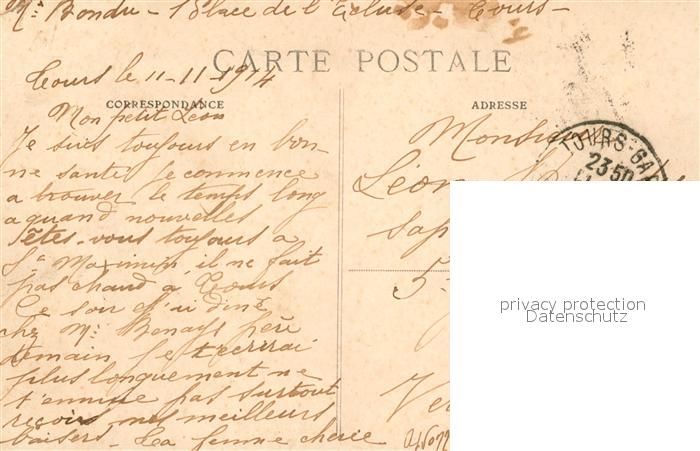 Mr Bondu - 1 Place de l'Ecluse - Tours -
CARTE POSTALE
Tours le 11-11-1914
CORRESPONDANCE
ADRESSE
Mon petit Léon
Je suis toujours en bon-
ne santé je commence
a trouver le temps long
a quand nouvelles
êtes-vous toujours a
St Maximin, il ne fait
pas chaud a Tours
Ce soir j'ai diné
chez Mr père
demain je t'ecrirai
plus longuement ne
t'ennuie pas surtout
reçois mes meilleurs
baisers - Ta femme cherie
Monsieur
Léon
sap
5
TOURS-GA
23 50
privacy protection
Datenschutz